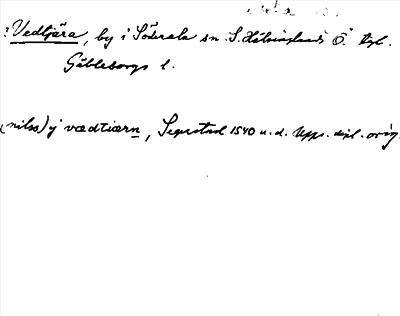 ? Vedtjära, by i Söderala sn. S. Hälsinglands Ö. tgl.
Gävleborgs l.
(nilss) j vædtiærn, Segerstad 1540 u. d. Upps. dipl. orig.